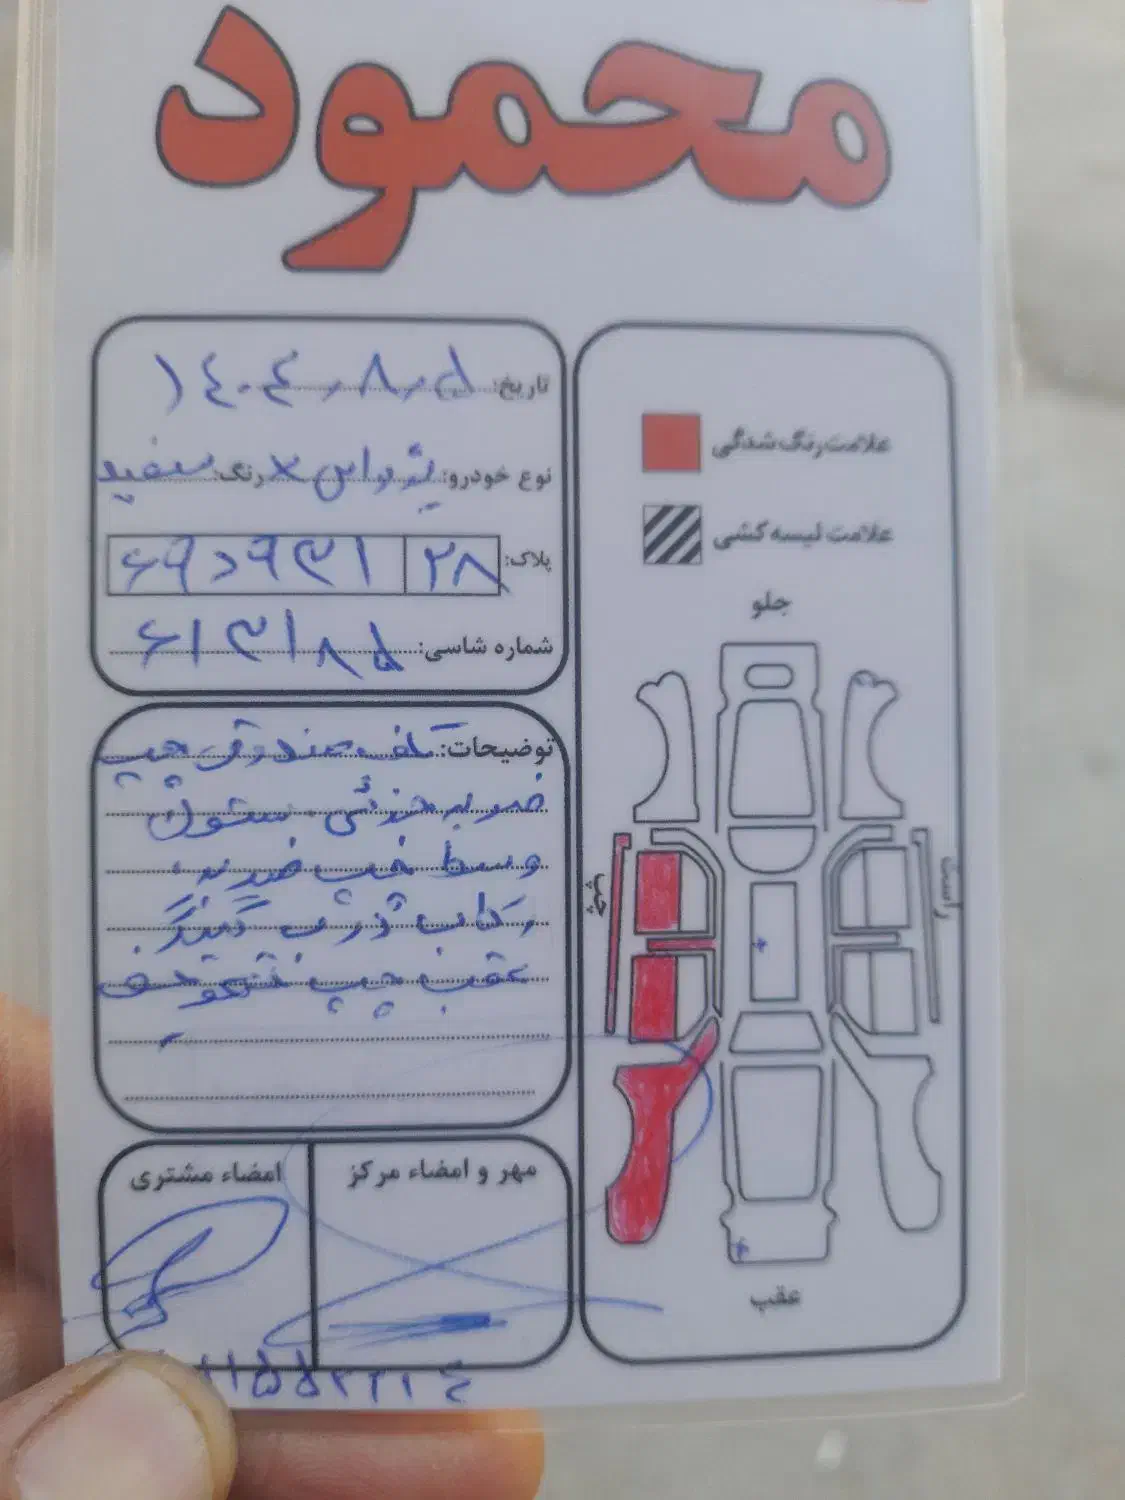 محمود
علامت رنگ شدگی
علامت لیسه کشی
جلو
چپ
راست
عقب
تاریخ: ۱۴۰۴،۸،۵
نوع خودرو: پژو پارس رنگ: سفید
پلاک: ۲۸
شماره شاسی: ۶۱۳۱۸۵
توضیحات: کف صندوق چپ
ضربه جزئی. ستون
وسط چپ ضربه
رکاب
عقب چپ تعویض
مهر و امضاء مرکز
امضاء مشتری